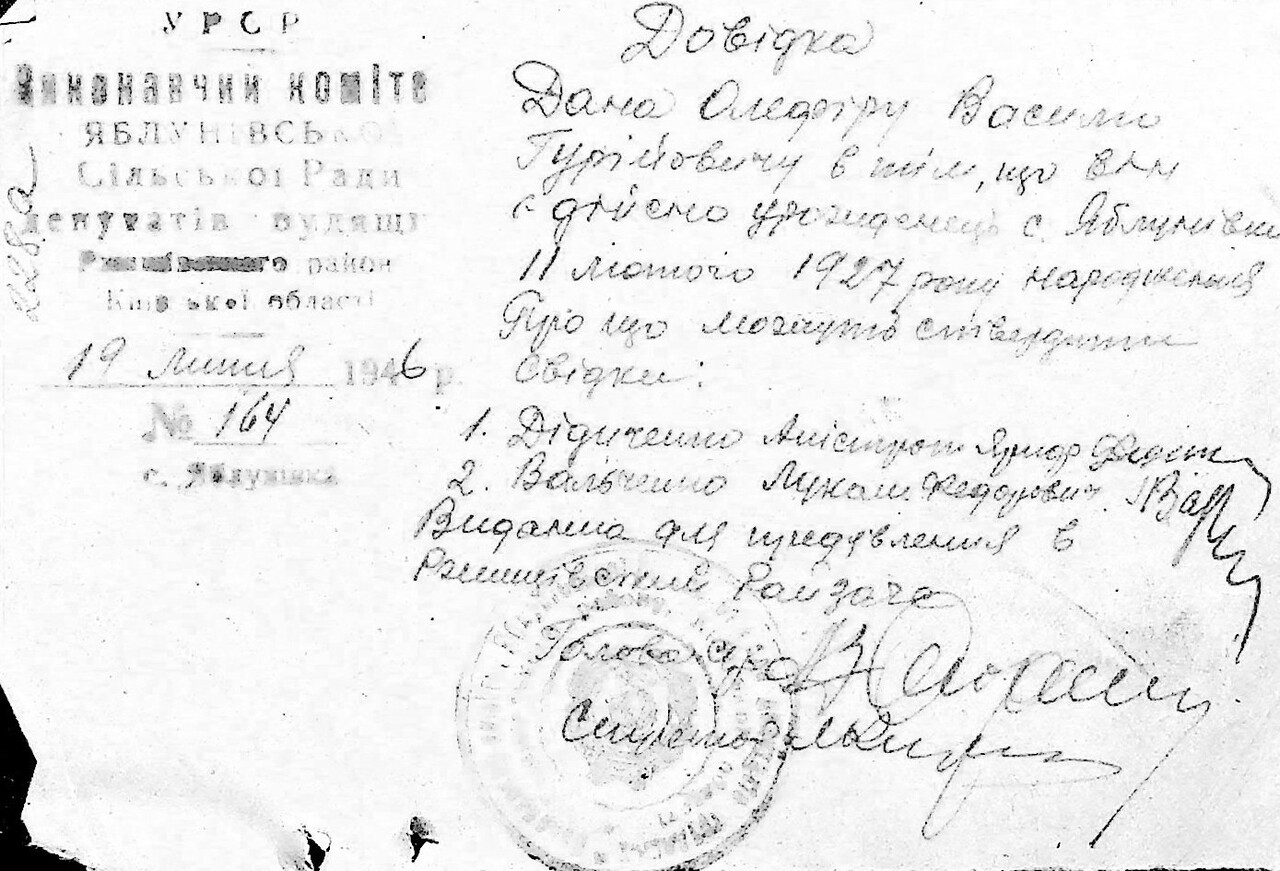 УРСР
Виконавчий коміте
ЯБЛУНІВСЬКОЇ
Сільської Ради
депутатів
район
Київської області
19 липня 1946 р.
№ 164
с. Яблунівка
228а
Довідка
Дана Олефіру Василю
Гурійовичу в тім, що він
є дійсно урожденець с. Яблунівки
11 лютого 1927 року народження
Про що можуть ствердити
Свідки:
1. Дідиченко
2. Вальченко Федорович
Виданна для предявлення в
Голова с/ра
Секретар